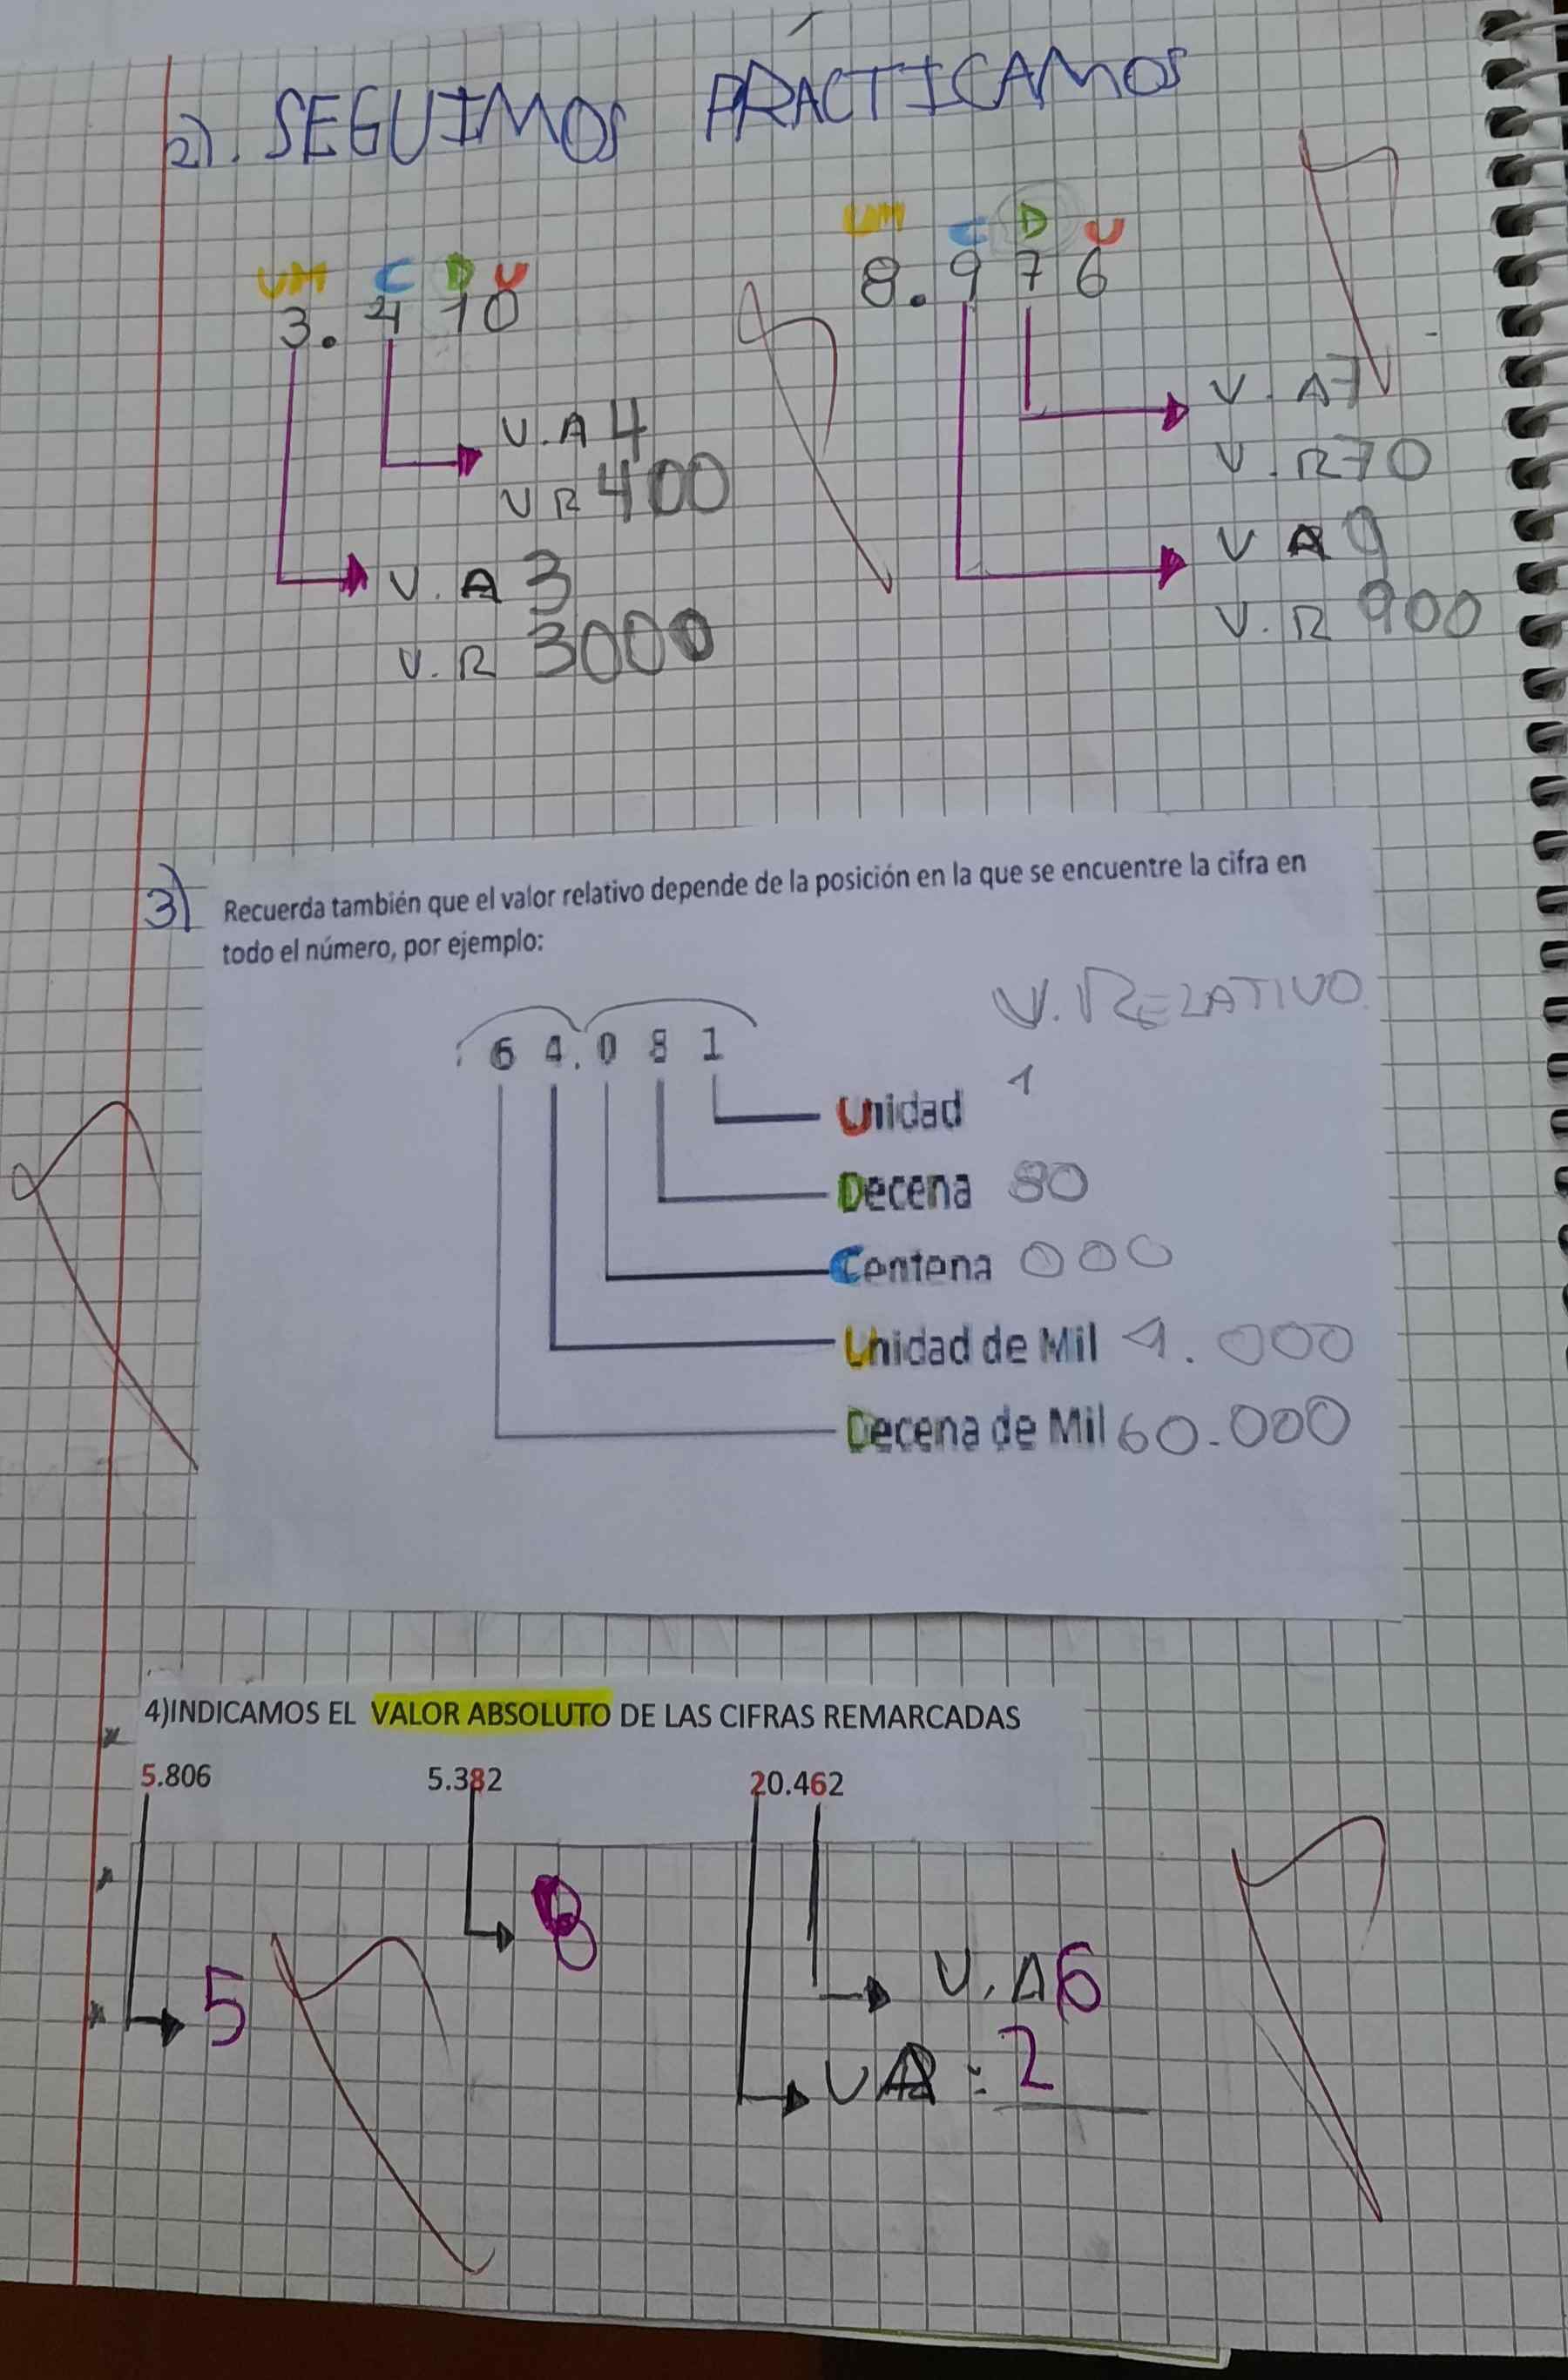 2). SEGUIMOS PRÁCTICAMOS
UM C D U
3. 4 1 0
V. A 4
V R 400
V. A 3
V. R 3000
UM C D U
8. 9 7 6
V. A 7
V. R 70
V A 9
V. R 900
3) Recuerda también que el valor relativo depende de la posición en la que se encuentre la cifra en
todo el número, por ejemplo:
V. RELATIVO
6 4. 0 8 1
Unidad 1
Decena 80
Centena 000
Unidad de Mil 4.000
Decena de Mil 60.000
4)INDICAMOS EL VALOR ABSOLUTO DE LAS CIFRAS REMARCADAS
5.806 5.382 20.462
5
8
V. A 6
V A : 2